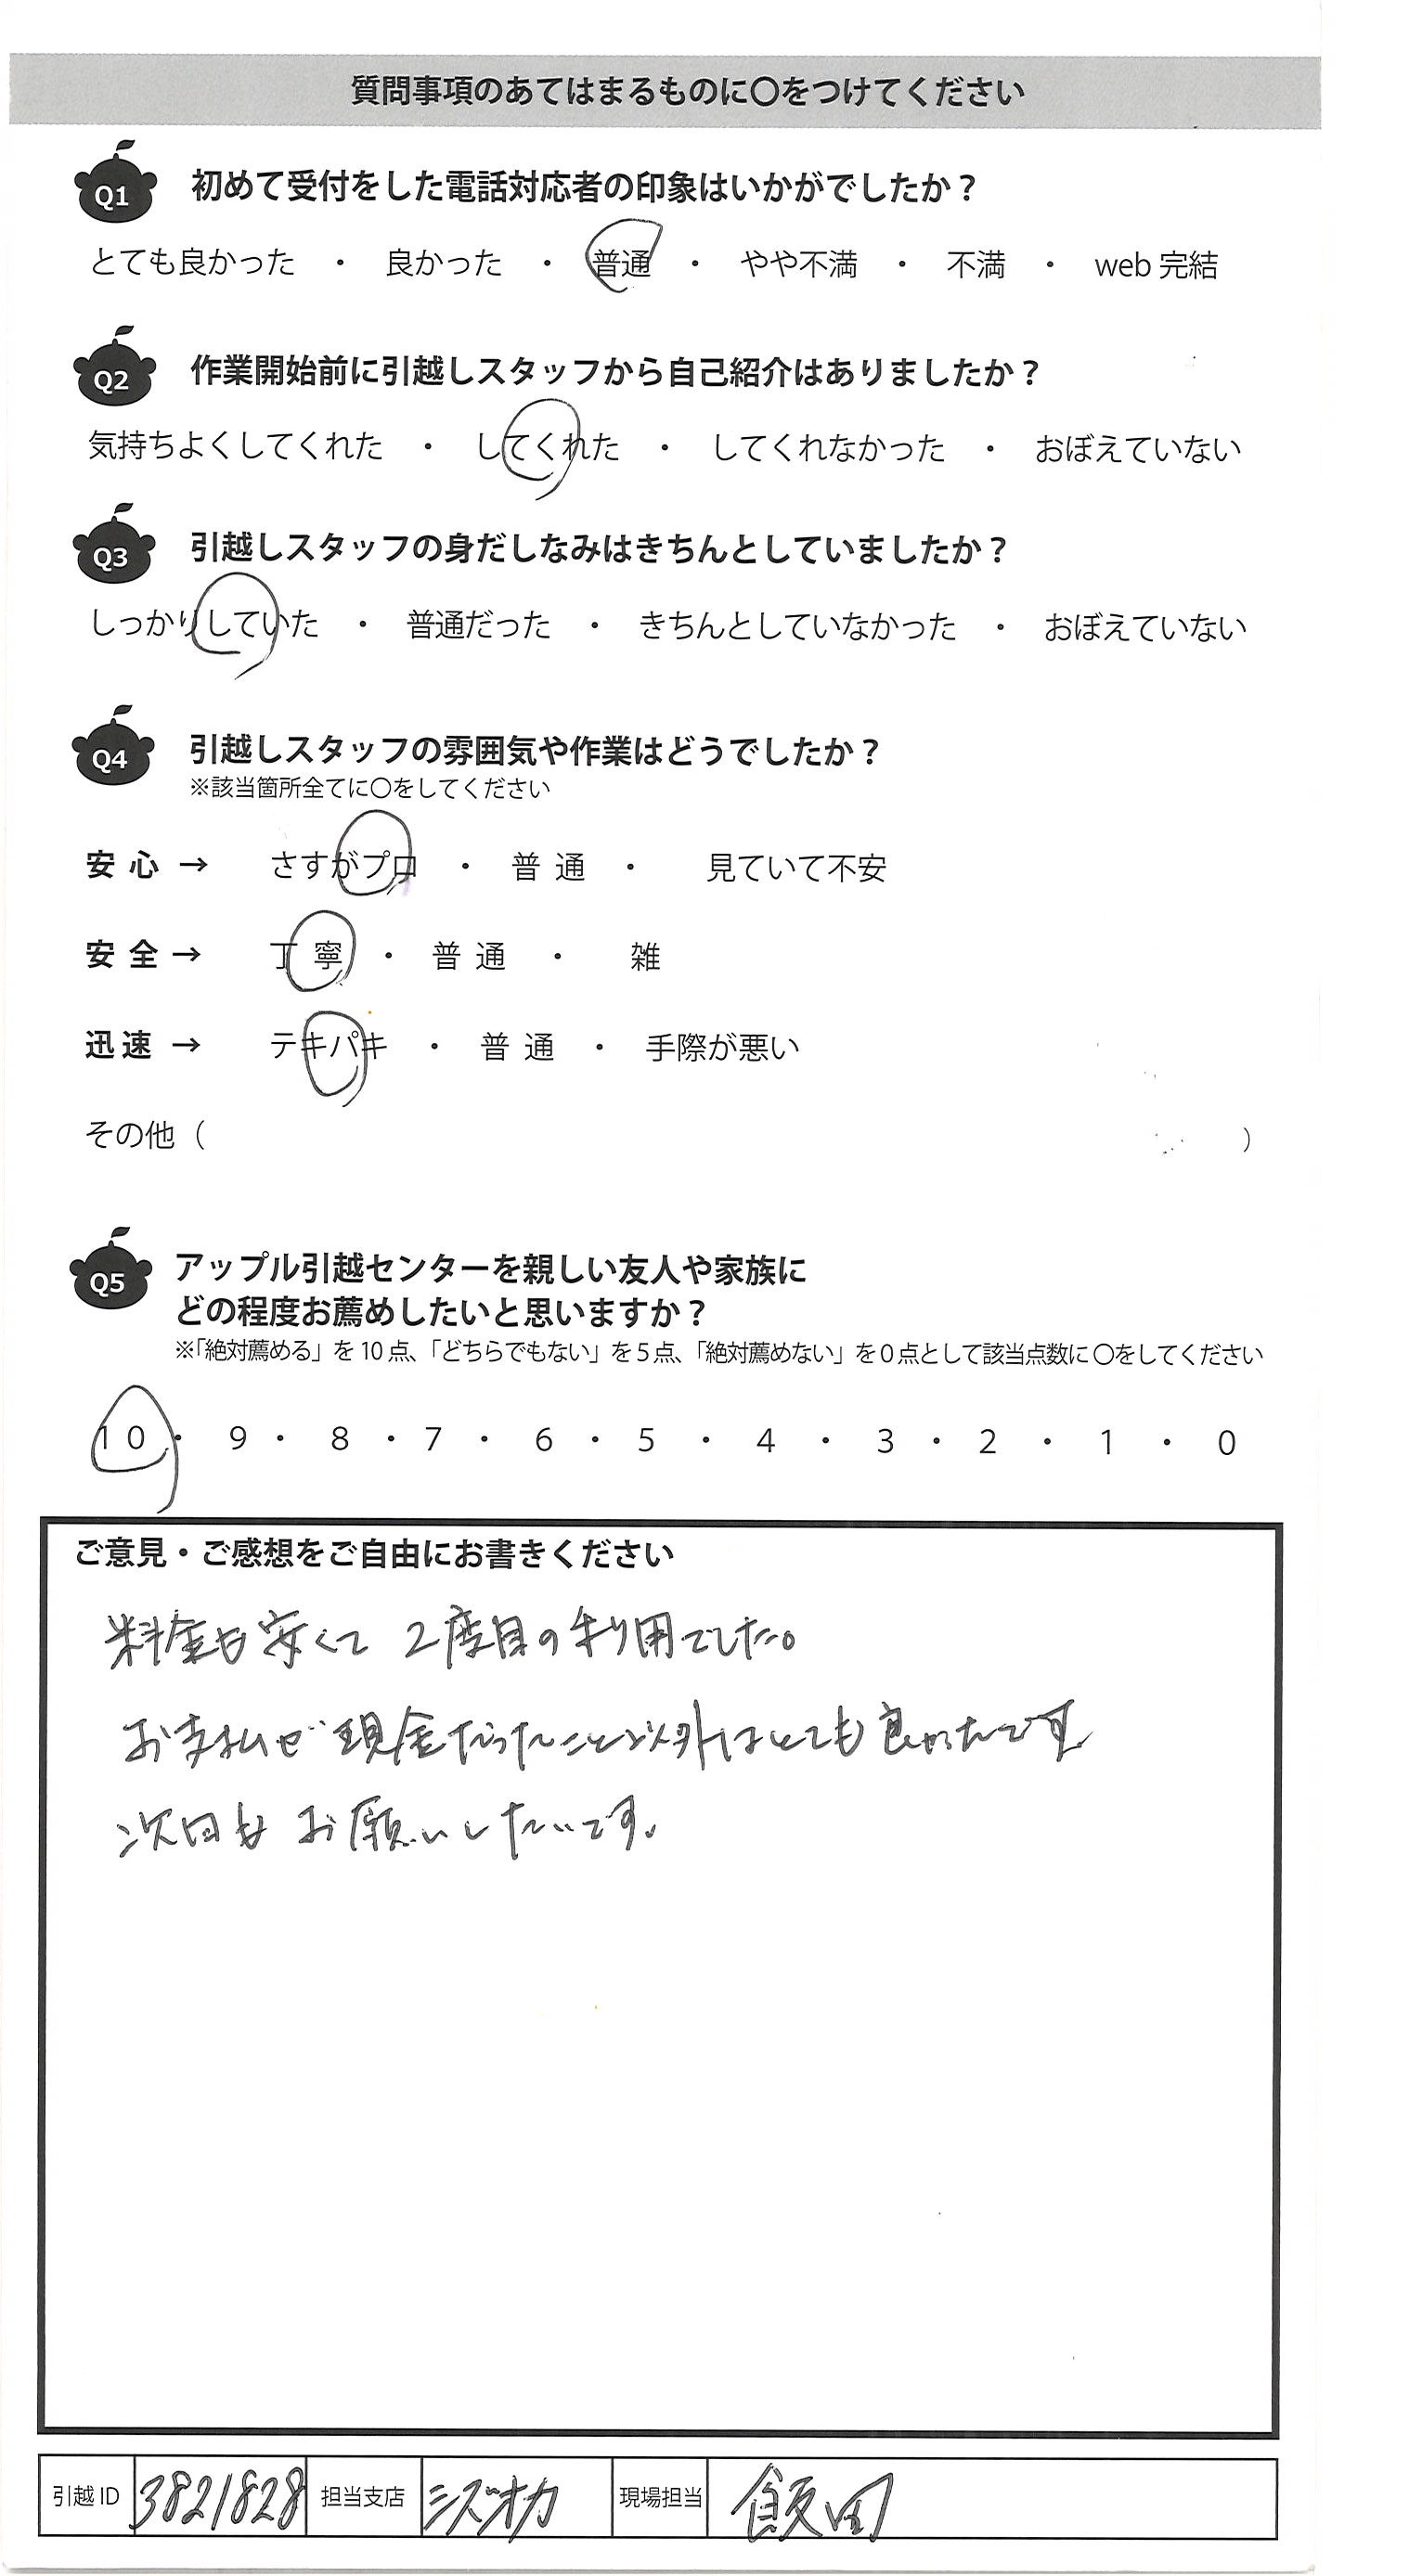 質問事項のあてはまるものに〇をつけてください
Q1 初めて受付をした電話対応者の印象はいかがでしたか？
とても良かった ・ 良かった ・ 普通 ・ やや不満 ・ 不満 ・ web 完結
Q2 作業開始前に引越しスタッフから自己紹介はありましたか？
気持ちよくしてくれた ・ してくれた ・ してくれなかった ・ おぼえていない
Q3 引越しスタッフの身だしなみはきちんとしていましたか？
しっかりしていた ・ 普通だった ・ きちんとしていなかった ・ おぼえていない
Q4 引越しスタッフの雰囲気や作業はどうでしたか？
※該当箇所全てに〇をしてください
安心 → さすがプロ ・ 普通 ・ 見ていて不安
安全 → 丁寧 ・ 普通 ・ 雑
迅速 → テキパキ ・ 普通 ・ 手際が悪い
その他（ ）
Q5 アップル引越センターを親しい友人や家族に
どの程度お薦めしたいと思いますか？
※「絶対薦める」を 10 点、「どちらでもない」を 5 点、「絶対薦めない」を 0 点として該当点数に 〇をしてください
10 ・ 9 ・ 8 ・ 7 ・ 6 ・ 5 ・ 4 ・ 3 ・ 2 ・ 1 ・ 0
ご意見・ご感想をご自由にお書きください
料金も安くて 2度目の利用でした。
お支払が現金だったこと以外はとても良かったです
次回もお願いしたいです。
引越 ID 3821828 担当支店 シズオカ 現場担当 飯田